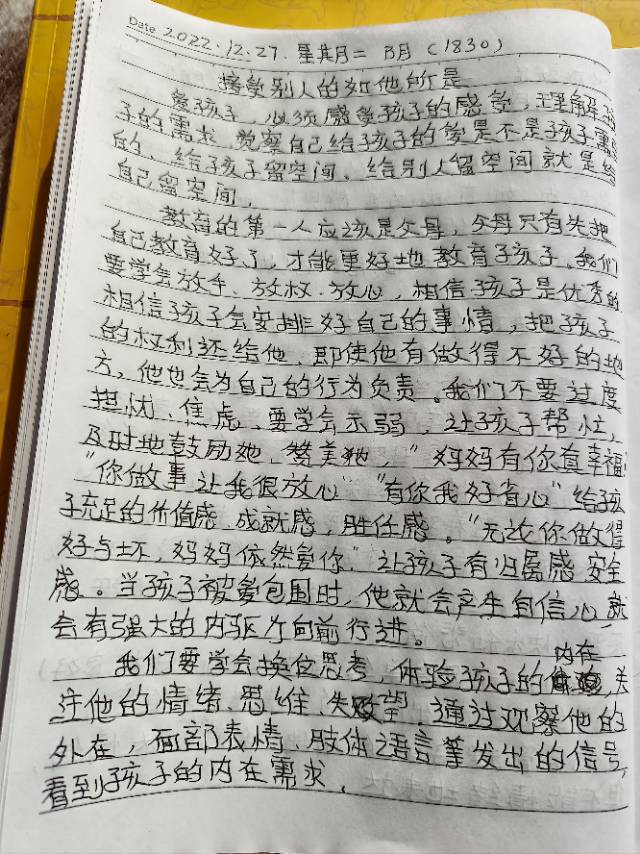 Date 2022.12.27. 星其月二 B月(1830)
接受别人的如他所是
爱孩子,必须感受孩子的感受,理解孩
子的需求,觉察自己给孩子的爱是不是孩子需要
的、给孩子留空间、给别人留空间就是给
自己留空间.
教育的第一人应该是父母,父母只有先把
自己教育好了,才能更好地教育子孩子、我们
要学会放手、放权、放心,相信孩子是优秀的
相信孩子会安排好自己的事情,把孩子
的权利还给他,即使他有做得不好的地
方,他也会为自己的行为负责。我们不要过度
担忧、焦虑,要学会示弱,让孩子帮忙,
及时地鼓励她、赞美她,"妈妈有你真幸福"
"你做事让我很放心""有你我好省心"给孩
子充足的价值感,成就感,胜任感。"无论你做得
好与坏,妈妈依然爱你"让孩子有归属感 安全
感。当孩子被爱包围时,他就会产生自信心,就
会有强大的内驱力向前行进。
我们要学会换位思考,体验孩子的内在,关
注他的情绪、思维、失望,通过观察他的
外在,面部表情、肢体语言等发出的信号,
看到孩子的内在需求.